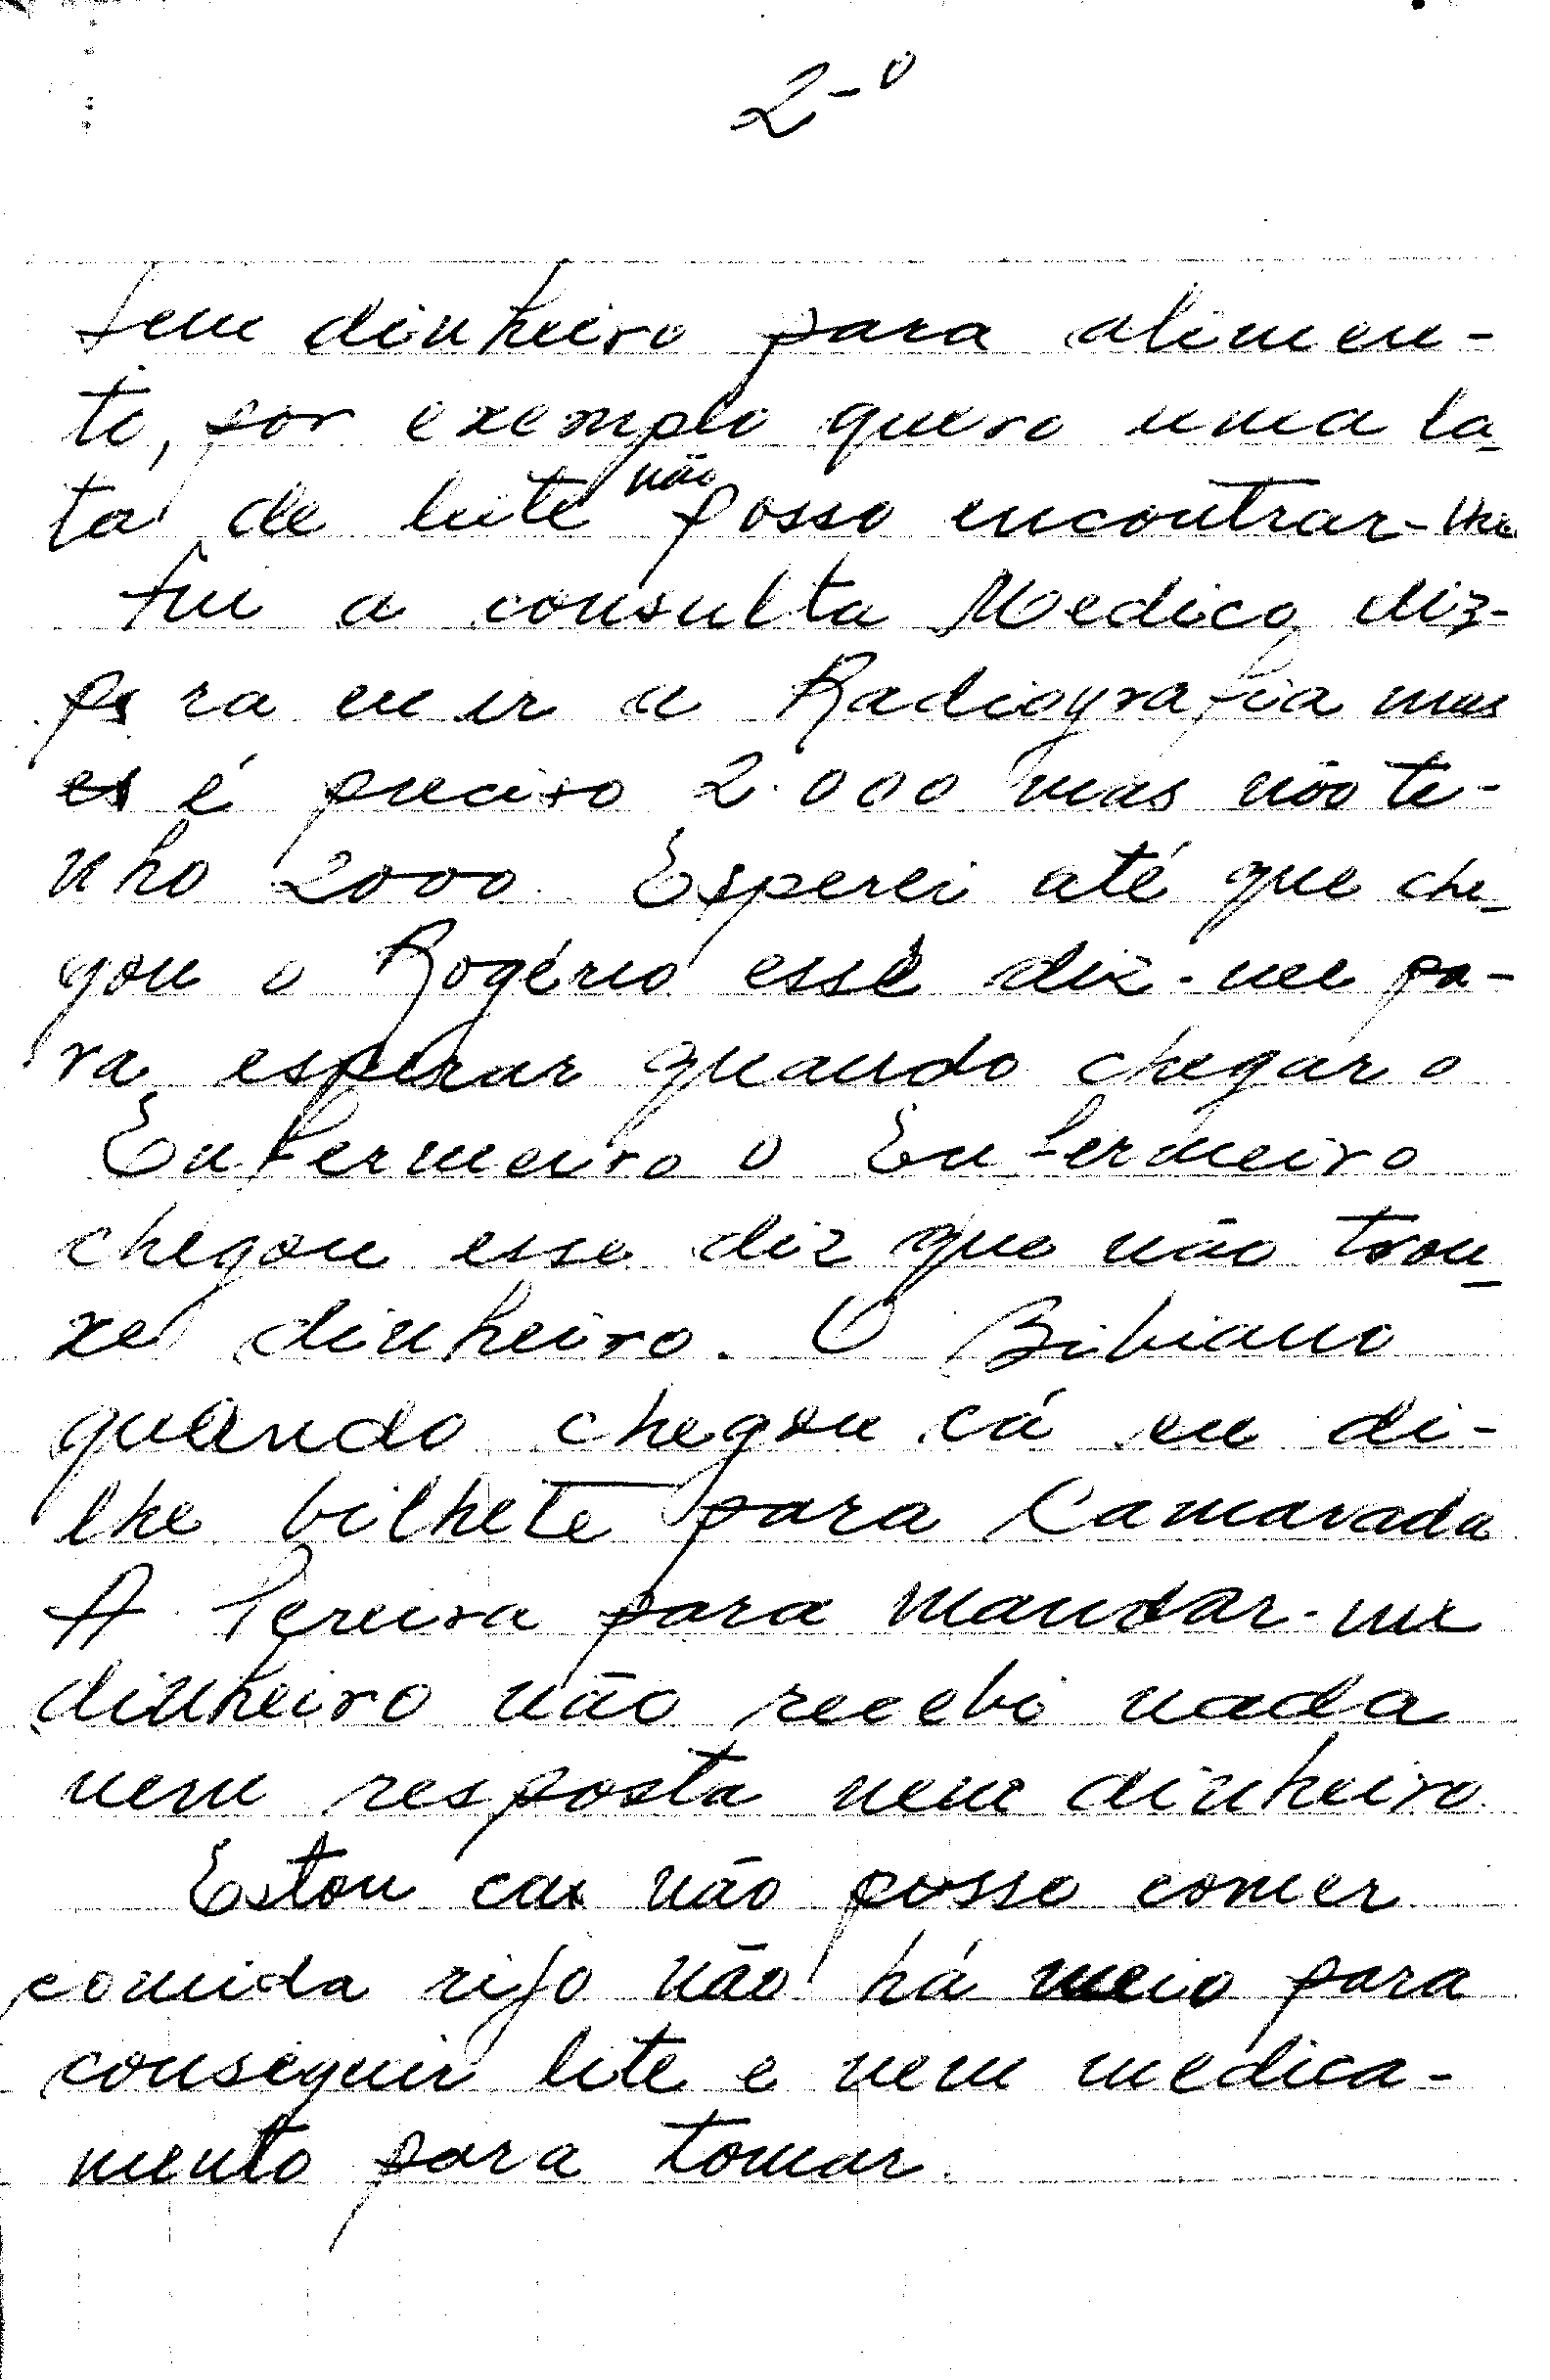 2-º
tem dinheiro para alimen-
to, por exemplo quero uma la-
ta de leite não posso encontrar-me
fui a consulta Medico, diz-
para eu ir a Radiografia mas
es é preciso 2.000 mas não te-
nho 2000. Esperei até que che-
gou o Rogério esse diz-me pa-
ra esperar quando chegar o
Enfermeiro o Enfermeiro
chegou esse diz que não trou-
xe dinheiro. O Bibiano
quando chegou cá eu di-
lhe bilhete para Camarada
A. Pereira para mandar-me
dinheiro não recebi nada
nem resposta nem dinheiro
Estou cá não posso comer
comida rijo não há meio para
conseguir lite e nem medica-
mento para tomar.